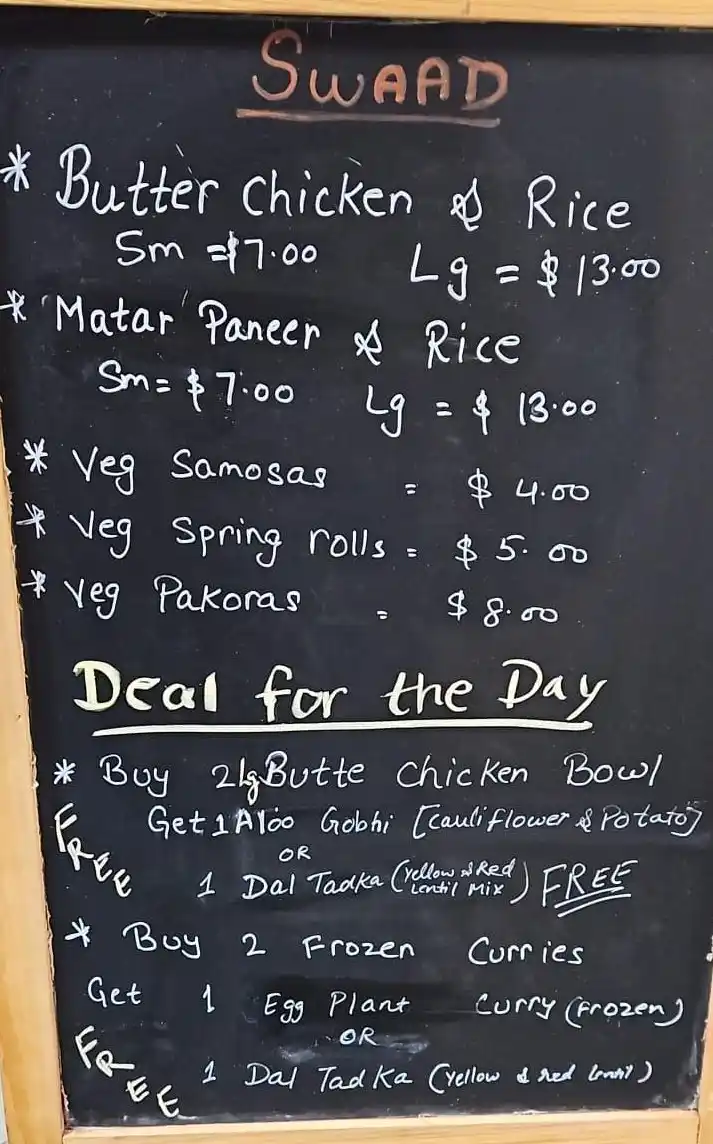 SWAAD
* Butter Chicken & Rice
Sm = $7.00 Lg = $13.00
* Matar Paneer & Rice
Sm = $7.00 Lg = $13.00
* Veg Samosas = $4.00
* Veg Spring rolls = $5.00
* Veg Pakoras = $8.00
Deal for the Day
* Buy 2 lg Butte Chicken Bowl
Get 1 Aloo Gobhi [Cauliflower & Potato]
OR
1 Dal Tadka (Yellow & Red Lentil Mix) FREE
FREE
* Buy 2 Frozen Curries
Get 1 Egg Plant Curry (Frozen)
OR
1 Dal Tadka (Yellow & red lentil)
FREE